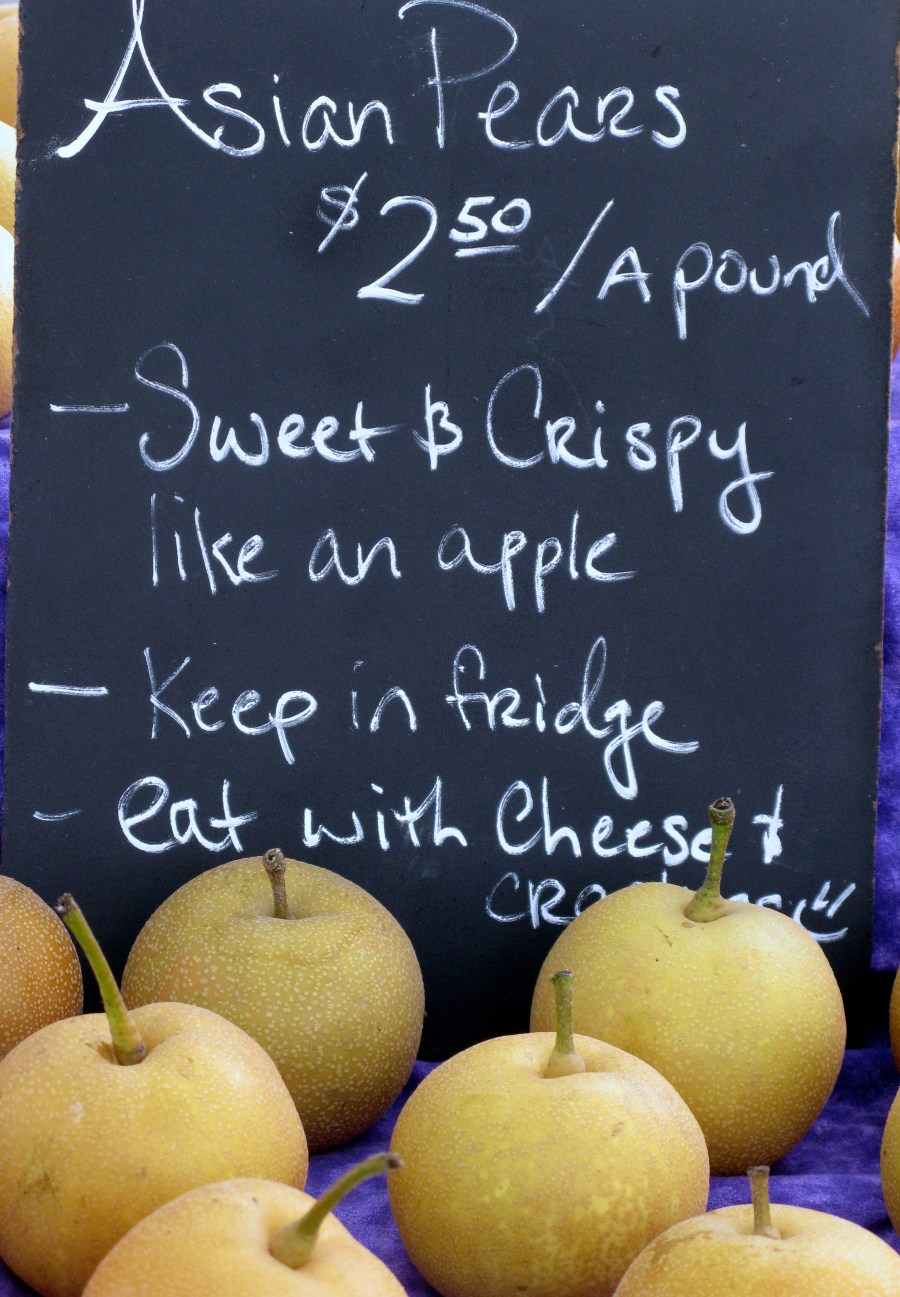 Asian Pears
$2 50 / A pound
- Sweet & Crispy
like an apple
- Keep in fridge
- eat with Cheese &